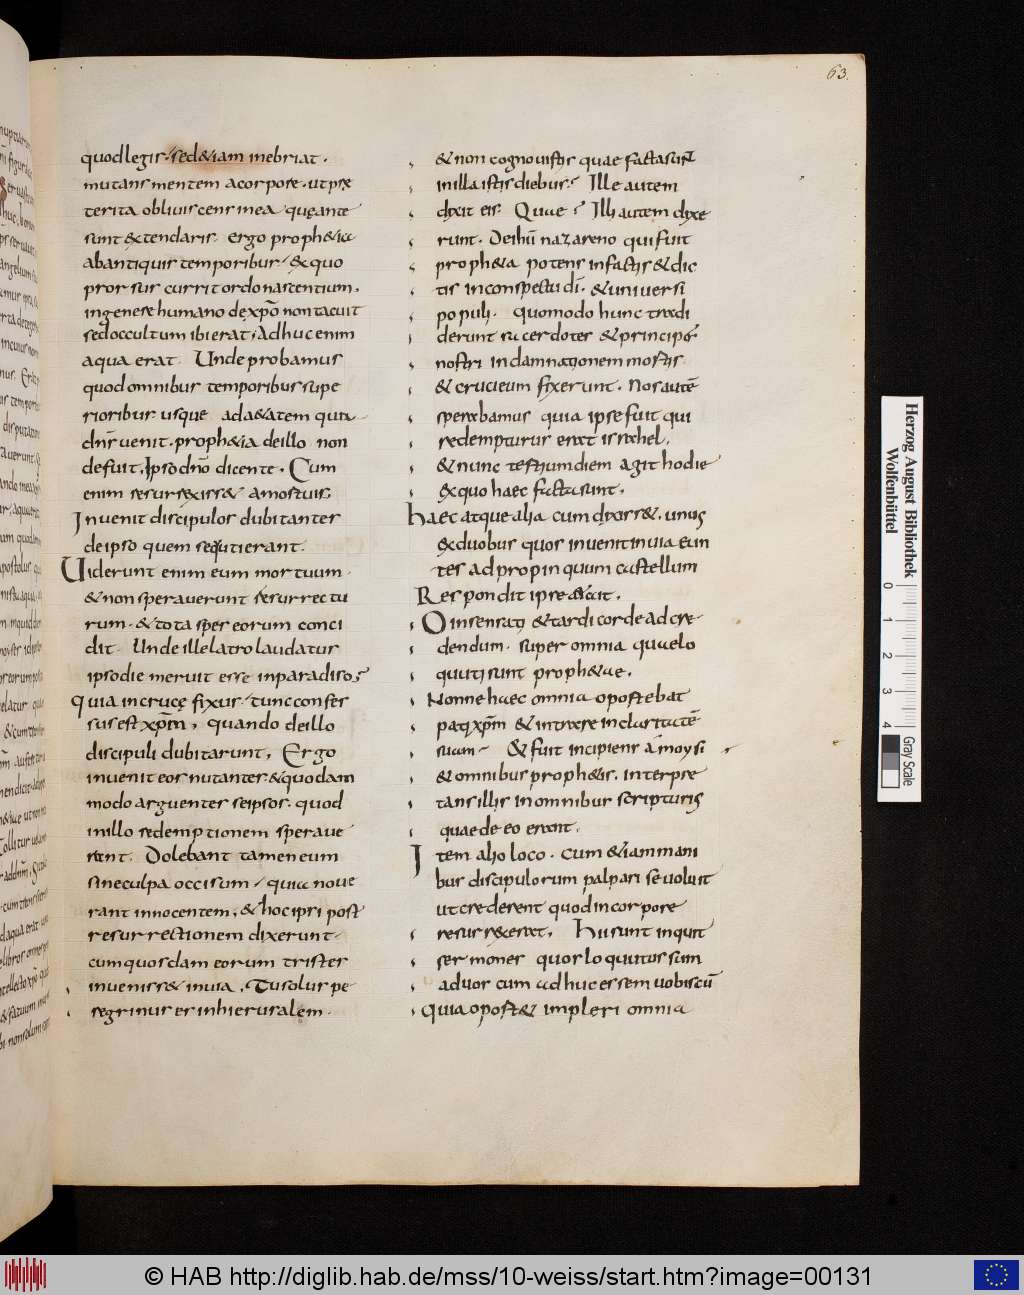 63.
quod legis. sed &iam inebriat.
mutans mentem a corpore. ut prę
terita obliuiscens in ea quęante
sunt extendaris. ergo proph&ia
ab antiquis temporibus. ex quo
prorsus currit ordo nascentium.
in genere humano dexp̄o non tacuit
sed occultum ibi erat, adhuc enim
aqua erat. Unde probamus
quod omnibus temporibus supe
rioribus usque ad a&atem qua
dn̄s uenit. proph&ia de illo non
defuit. Ipso dn̄o dicente. Cum
enim resurrexiss& a mortuis.
Inuenit discipulos dubitantes
de ipso quem sequuti erant.
Uiderunt enim eum mortuum.
& non sperauerunt resurrectu
rum. & tota spes eorum conci
dit. Unde ille latro laudatus
ipso die meruit esse in paradiso;
quia in cruce fixus. tunc confes
sus est xp̄m, quando de illo
discipuli dubitarunt, Ergo
inuenit eos nutantes. & quodam
modo arguentes se ipsos. quod
in illo redemptionem speraue
rant. Dolebant tamen eum
sine culpa occisum, quia noue
rant innocentem, & hoc ipsi post
resurrectionem dixerunt.
cum quosdam eorum tristes
inueniss& in uia, Tu solus pe
regrinus es in hierusalem.
& non cognouistis quae facta sunt
in illa istis diebus? Ille autem
dixit eis. Quae? Illi autem dixe
runt. De ih̄u nazareno qui fuit
proph&a potens in factis & dic
tis in conspectu dī. & uniuersi
populi. quomodo hunc tradi
derunt sacerdotes & principes
nostri in damnationem mortis
& crucieum fixerunt. Nos autē
sperabamus quia ipse fuit qui
redempturus erat israhel.
& nunc tertium diem agit hodie
ex quo haec facta sunt.
Haec atque alia cum dixiss&. unus
ex duobus quos inuenit in uia eun
tes ad propinquum castellum
Respondit ipse & dicit.
O insensati & tardi corde ad cre
dendum. super omnia quae lo
quuti sunt proph&ae.
Nonne haec omnia oportebat
pati xp̄m & intrare in claritatē
suam. & fuit incipiens a moysi
& omnibus proph&is. interpre
tans illis in omnibus scripturis
quae de eo erant.
Item alio loco. cum &iam mani
bus discipulorum palpari se uoluit
ut crederent quod in corpore
resurrexerat. Hii sunt inquit
sermones quos loquutus sum
ad uos cum adhuc essem uobiscū
quia oport& impleri omnia
Herzog August Bibliothek
Wolfenbüttel
0 1 2 3 4
Gray Scale
© HAB http://diglib.hab.de/mss/10-weiss/start.htm?image=00131